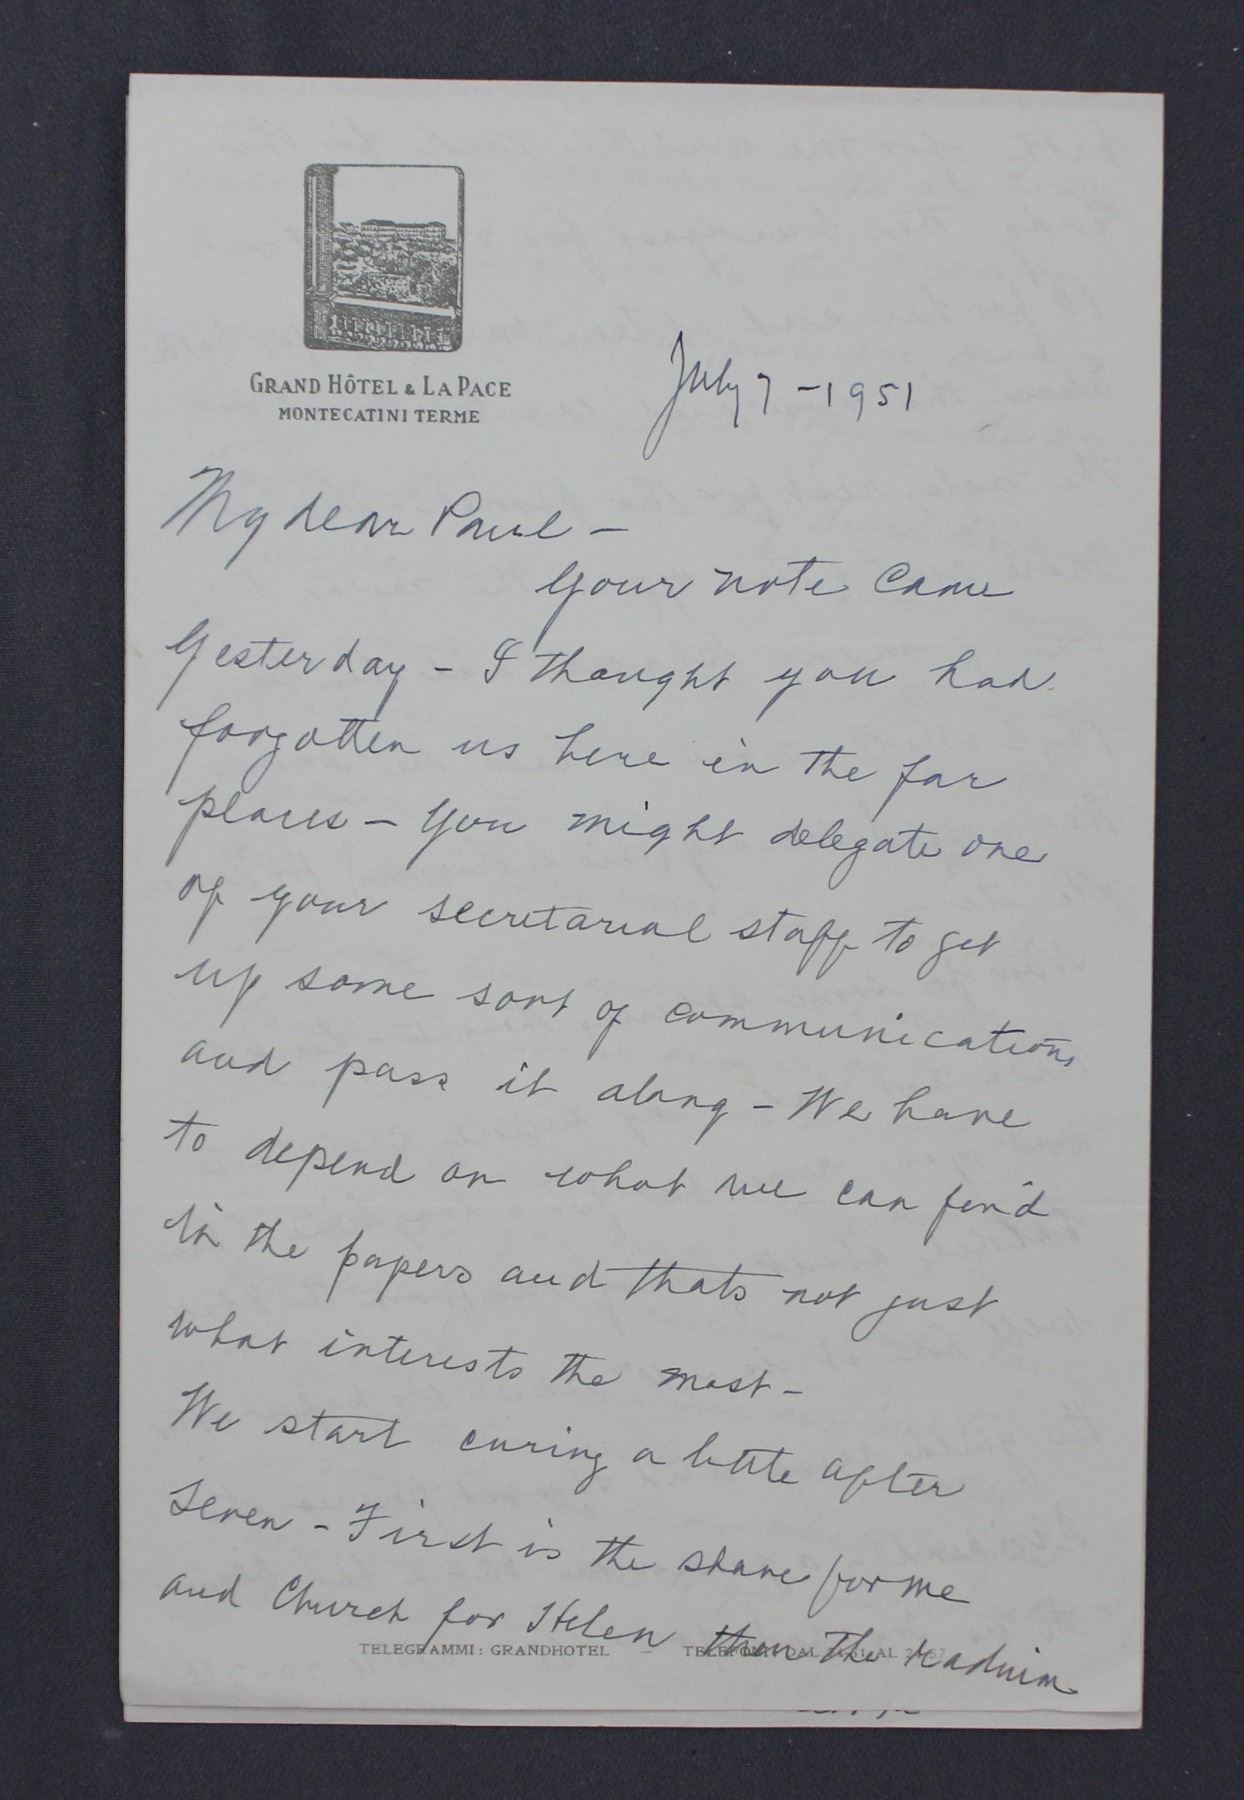 GRAND HÔTEL & LA PACE
MONTECATINI TERME
July 7 - 1951
My dear Paul -
Your note came
Yesterday - I thought you had
forgotten us here in the far
places - You might delegate one
of your secretarial staff to get
up some sort of communications
and pass it along - We have
to depend on what we can find
in the papers and thats not just
what interests the most -
We start curing a little after
seven - First is the shave for me
and Church for Helen then The Radium
TELEGRAMMI: GRANDHOTEL - TELEFONI: DAL AL